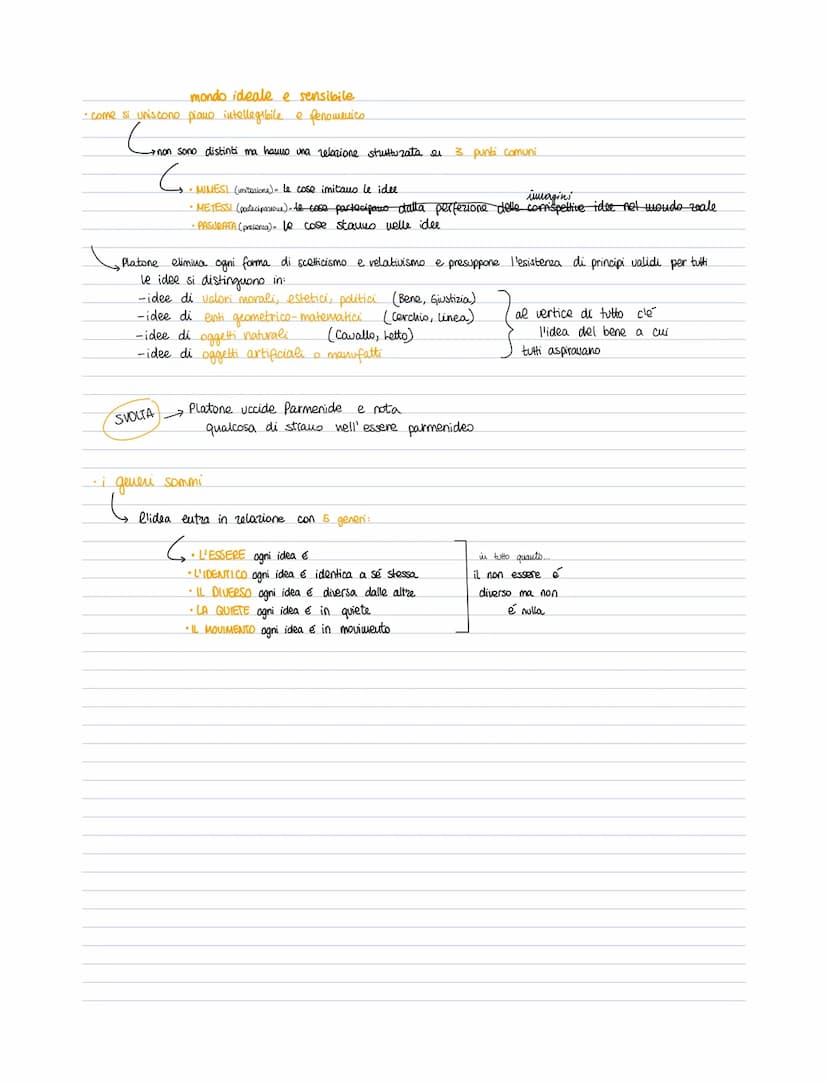 mondo ideale e sensibile
· come si uniscono piano intellegibile e fenomenico
non sono distinti ma hanno una relazione strutturata su 3 punti comuni
· MIMESI (imitazione)= le cose imitano le idee
immagini
· METESSI (partecipazione)= le cose partecipano dalla perfezione delle corrispettive idee nel mondo reale
· PASURATA (presenza)= le cose stanno nelle idee
Platone elimina ogni forma di scetticismo e relativismo e presuppone l'esistenza di principi validi per tutti
le idee si distinguono in:
-idee di valori morali, estetici, politici (Bene, Giustizia)
-idee di enti geometrico-matematici (Cerchio, Linea)
-idee di oggetti naturali (Cavallo, Letto)
-idee di oggetti artificiali o manufatti
al vertice di tutto c'è
l'idea del bene a cui
tutti aspiravano
SVOLTA → Platone uccide Parmenide e nota
qualcosa di strano nell'essere parmenideo
· i generi sommi
l'idea entra in relazione con 5 generi:
· L'ESSERE ogni idea é
· L'IDENTICO ogni idea é identica a sé stessa
· IL DIVERSO ogni idea é diversa dalle altre
· LA QUIETE ogni idea é in quiete
· IL MOVIMENTO ogni idea é in movimento
in tutto questo...
il non essere é
diverso ma non
é nulla